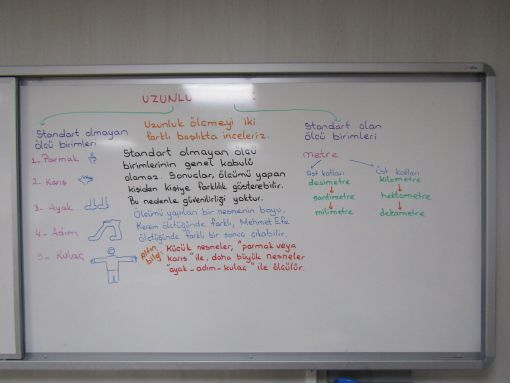 UZUNLU :
Uzunluk ölçmeyi iki
farklı başlıkta inceleriz.
Standart olmayan
ölçü birimleri
1- Parmak
2- Karış
3- Ayak
4- Adım
5- Kulaç
Standart olmayan ölçü
birimlerinin genel kabulü
olamaz. Sonuçlar, ölçümü yapan
kişiden kişiye farklılık gösterebilir.
Bu nedenle güvenilirliği yoktur.
Ölçümü yapılan bir nesnenin boyu,
Kerem ölçtüğünde farklı, Mehmet Efe
ölçtüğünde farklı bir sonuç çıkabilir.
bilgi
Küçük nesneler, "parmak veya
karış" ile, daha büyük nesneler
"ayak-adım-kulaç" ile ölçülür.
Standart olan
ölçü birimleri
metre
Ast katları
desimetre
santimetre
milimetre
Üst katları
kilometre
hektometre
dekametre